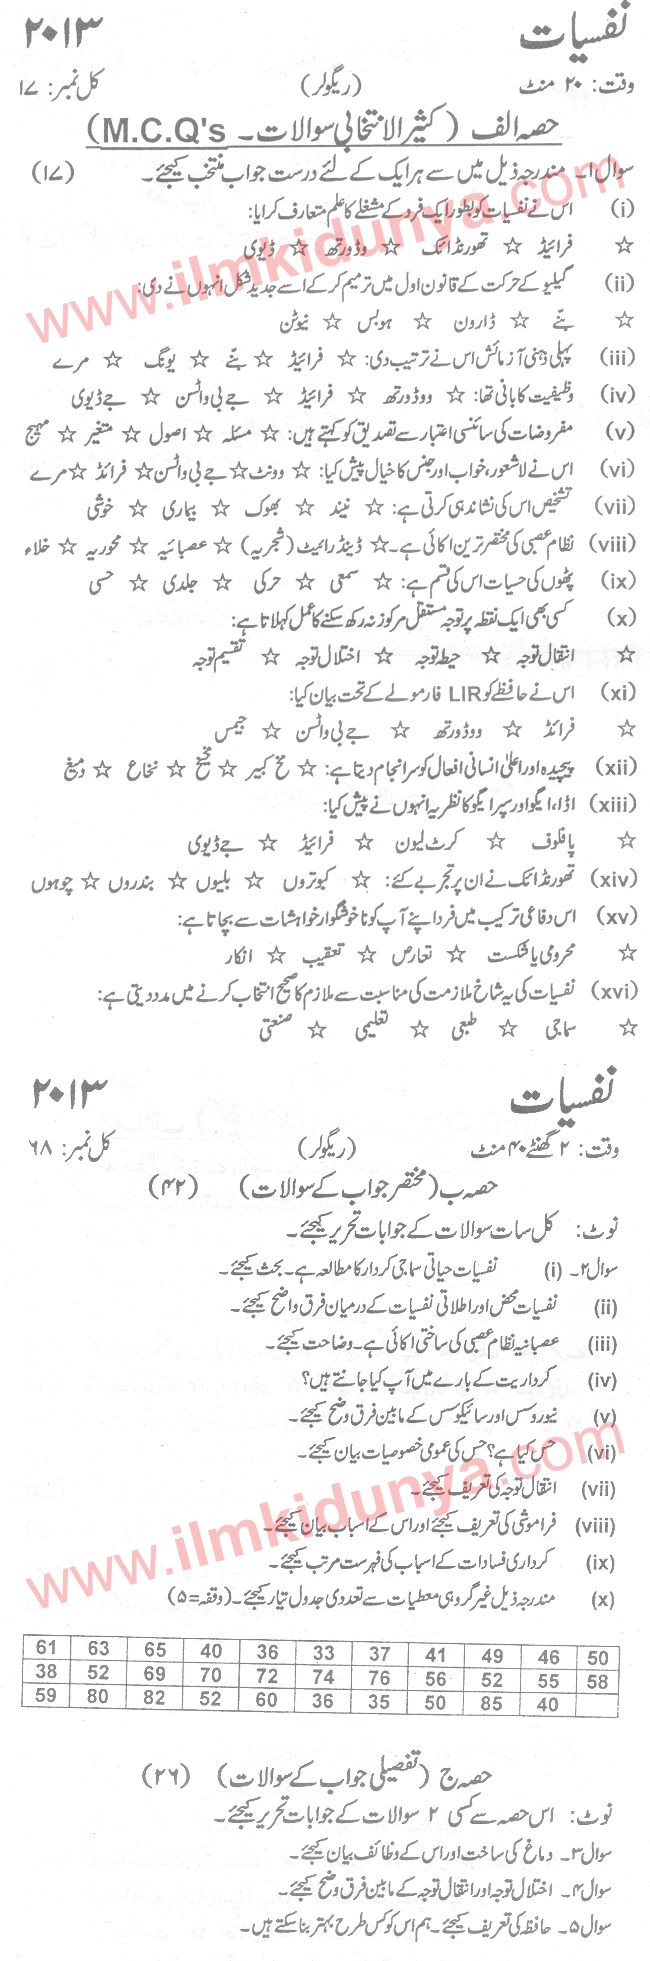 نفسیات ۲۰۱۳
وقت: ۲۰ منٹ (ریگولر) کل نمبر: ۱۷
حصہ الف (کثیر الانتخابی سوالات ۔ M.C.Q's)
سوال۱۔ مندرجہ ذیل میں سے ہر ایک کے لئے درست جواب منتخب کیجئے۔ (۱۷)
(i) اس نے نفسیات کو بطور ایک فرد کے مشغلے کا علم متعارف کرایا:
☆ فرائیڈ ☆ تھورنڈائک ☆ وڈورتھ ☆ ڈیوی
(ii) گیلیو کے حرکت کے قانون اول میں ترمیم کرکے اسے جدید شکل انہوں نے دی:
☆ بنّے ☆ ڈارون ☆ ہوبس ☆ نیوٹن
(iii) پہلی ذہنی آزمائش اس نے ترتیب دی: ☆ فرائیڈ ☆ بنّے ☆ یونگ ☆ مرے
(iv) وظیفیت کا بانی تھا: ☆ ووڈورتھ ☆ فرائیڈ ☆ جے بی واٹسن ☆ جے ڈیوی
(v) مفروضات کی سائنسی اعتبار سے تصدیق کو کہتے ہیں: ☆ مسئلہ ☆ اصول ☆ متغیر ☆ مہیج
(vi) اس نے لاشعور، خواب اور جنس کا خیال پیش کیا: ☆ وونٹ ☆ جے بی واٹسن ☆ فرائڈ ☆ مرے
(vii) تشخیص اس کی نشاندہی کرتی ہے: ☆ نیند ☆ بھوک ☆ بیماری ☆ خوشی
(viii) نظام عصبی کی مختصر ترین اکائی ہے۔ ☆ ڈینڈرائیٹ (شجریہ) ☆ عصبائیہ ☆ محوریہ ☆ خلاء
(ix) پٹھوں کی حسیات اس کی قسم ہے: ☆ سمعی ☆ حرکی ☆ جلدی ☆ حسی
(x) کسی بھی ایک نقطہ پر توجہ مستقل مرکوز نہ رکھ سکنے کا عمل کہلاتا ہے:
☆ انتقال توجہ ☆ حیطہ توجہ ☆ اختلال توجہ ☆ تقسیم توجہ
(xi) اس نے حافظے کو LIR فارمولے کے تحت بیان کیا:
☆ فرائڈ ☆ ووڈورتھ ☆ جے بی واٹسن ☆ جیمس
(xii) پیچیدہ اور اعلیٰ انسانی افعال کو سرانجام دیتا ہے: ☆ مخ کبیر ☆ مخیخ ☆ نخاع ☆ دمیغ
(xiii) اڈ، ایگو اور سپر ایگو کا نظریہ انہوں نے پیش کیا:
☆ پافلوف ☆ کرٹ لیون ☆ فرائیڈ ☆ جے ڈیوی
(xiv) تھورنڈائک نے ان پر تجربے کئے: ☆ کبوتروں ☆ بلیوں ☆ بندروں ☆ چوہوں
(xv) اس دفاعی ترکیب میں فرد اپنے آپ کو ناخوشگوار خواہشات سے بچاتا ہے:
☆ محرومی یا شکست ☆ تعارض ☆ تعقیب ☆ انکار
(xvi) نفسیات کی یہ شاخ ملازمت کی مناسبت سے ملازم کا صحیح انتخاب کرنے میں مدد دیتی ہے:
☆ سماجی ☆ طبعی ☆ تعلیمی ☆ صنعتی
نفسیات ۲۰۱۳
وقت: ۲ گھنٹے ۴۰ منٹ (ریگولر) کل نمبر: ۶۸
حصہ ب (مختصر جواب کے سوالات) (۴۲)
نوٹ: کل سات سوالات کے جوابات تحریر کیجئے۔
سوال۲۔ (i) نفسیات حیاتی سماجی کردار کا مطالعہ ہے۔ بحث کیجئے۔
(ii) نفسیات محض اور اطلاتی نفسیات کے درمیان فرق واضح کیجئے۔
(iii) عصبانیہ نظام عصبی کی ساختی اکائی ہے۔ وضاحت کیجئے۔
(iv) کرداریت کے بارے میں آپ کیا جانتے ہیں؟
(v) نیوروسس اور سائیکوسس کے مابین فرق وضح کیجئے۔
(vi) حس کیا ہے؟ حس کی عمومی خصوصیات بیان کیجئے۔
(vii) انتقال توجہ کی تعریف کیجئے۔
(viii) فراموشی کی تعریف کیجئے اور اس کے اسباب بیان کیجئے۔
(ix) کرداری فسادات کے اسباب کی فہرست مرتب کیجئے۔
(x) مندرجہ ذیل غیر گروہی معطیات سے تعددی جدول تیار کیجئے۔ (وقفہ=۵)
61 63 65 40 36 33 37 41 49 46 50
38 52 69 70 72 74 76 56 52 55 58
59 80 82 52 60 36 35 50 85 40
حصہ ج (تفصیلی جواب کے سوالات) (۲۶)
نوٹ: اس حصہ سے کسی ۲ سوالات کے جوابات تحریر کیجئے۔
سوال۳۔ دماغ کی ساخت اور اس کے وظائف بیان کیجئے۔
سوال۴۔ اختلال توجہ اور انتقال توجہ کے مابین فرق وضح کیجئے۔
سوال۵۔ حافظہ کی تعریف کیجئے۔ ہم اس کو کس طرح بہتر بنا سکتے ہیں۔
www.ilmkidunya.com
www.ilmkidunya.com